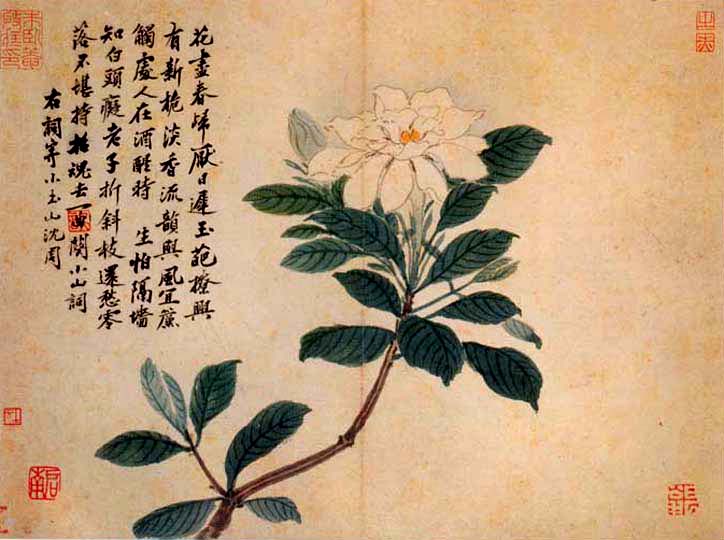 花盡春歸厭日遲玉葩撩興
有新梔淡香流韻與風宜簾
觸處人在酒醒時 生怕隔墻
知白頭癡老子折斜枝還愁零
落不堪持招魂去一闋小山詞
右詞寄小玉山沈周